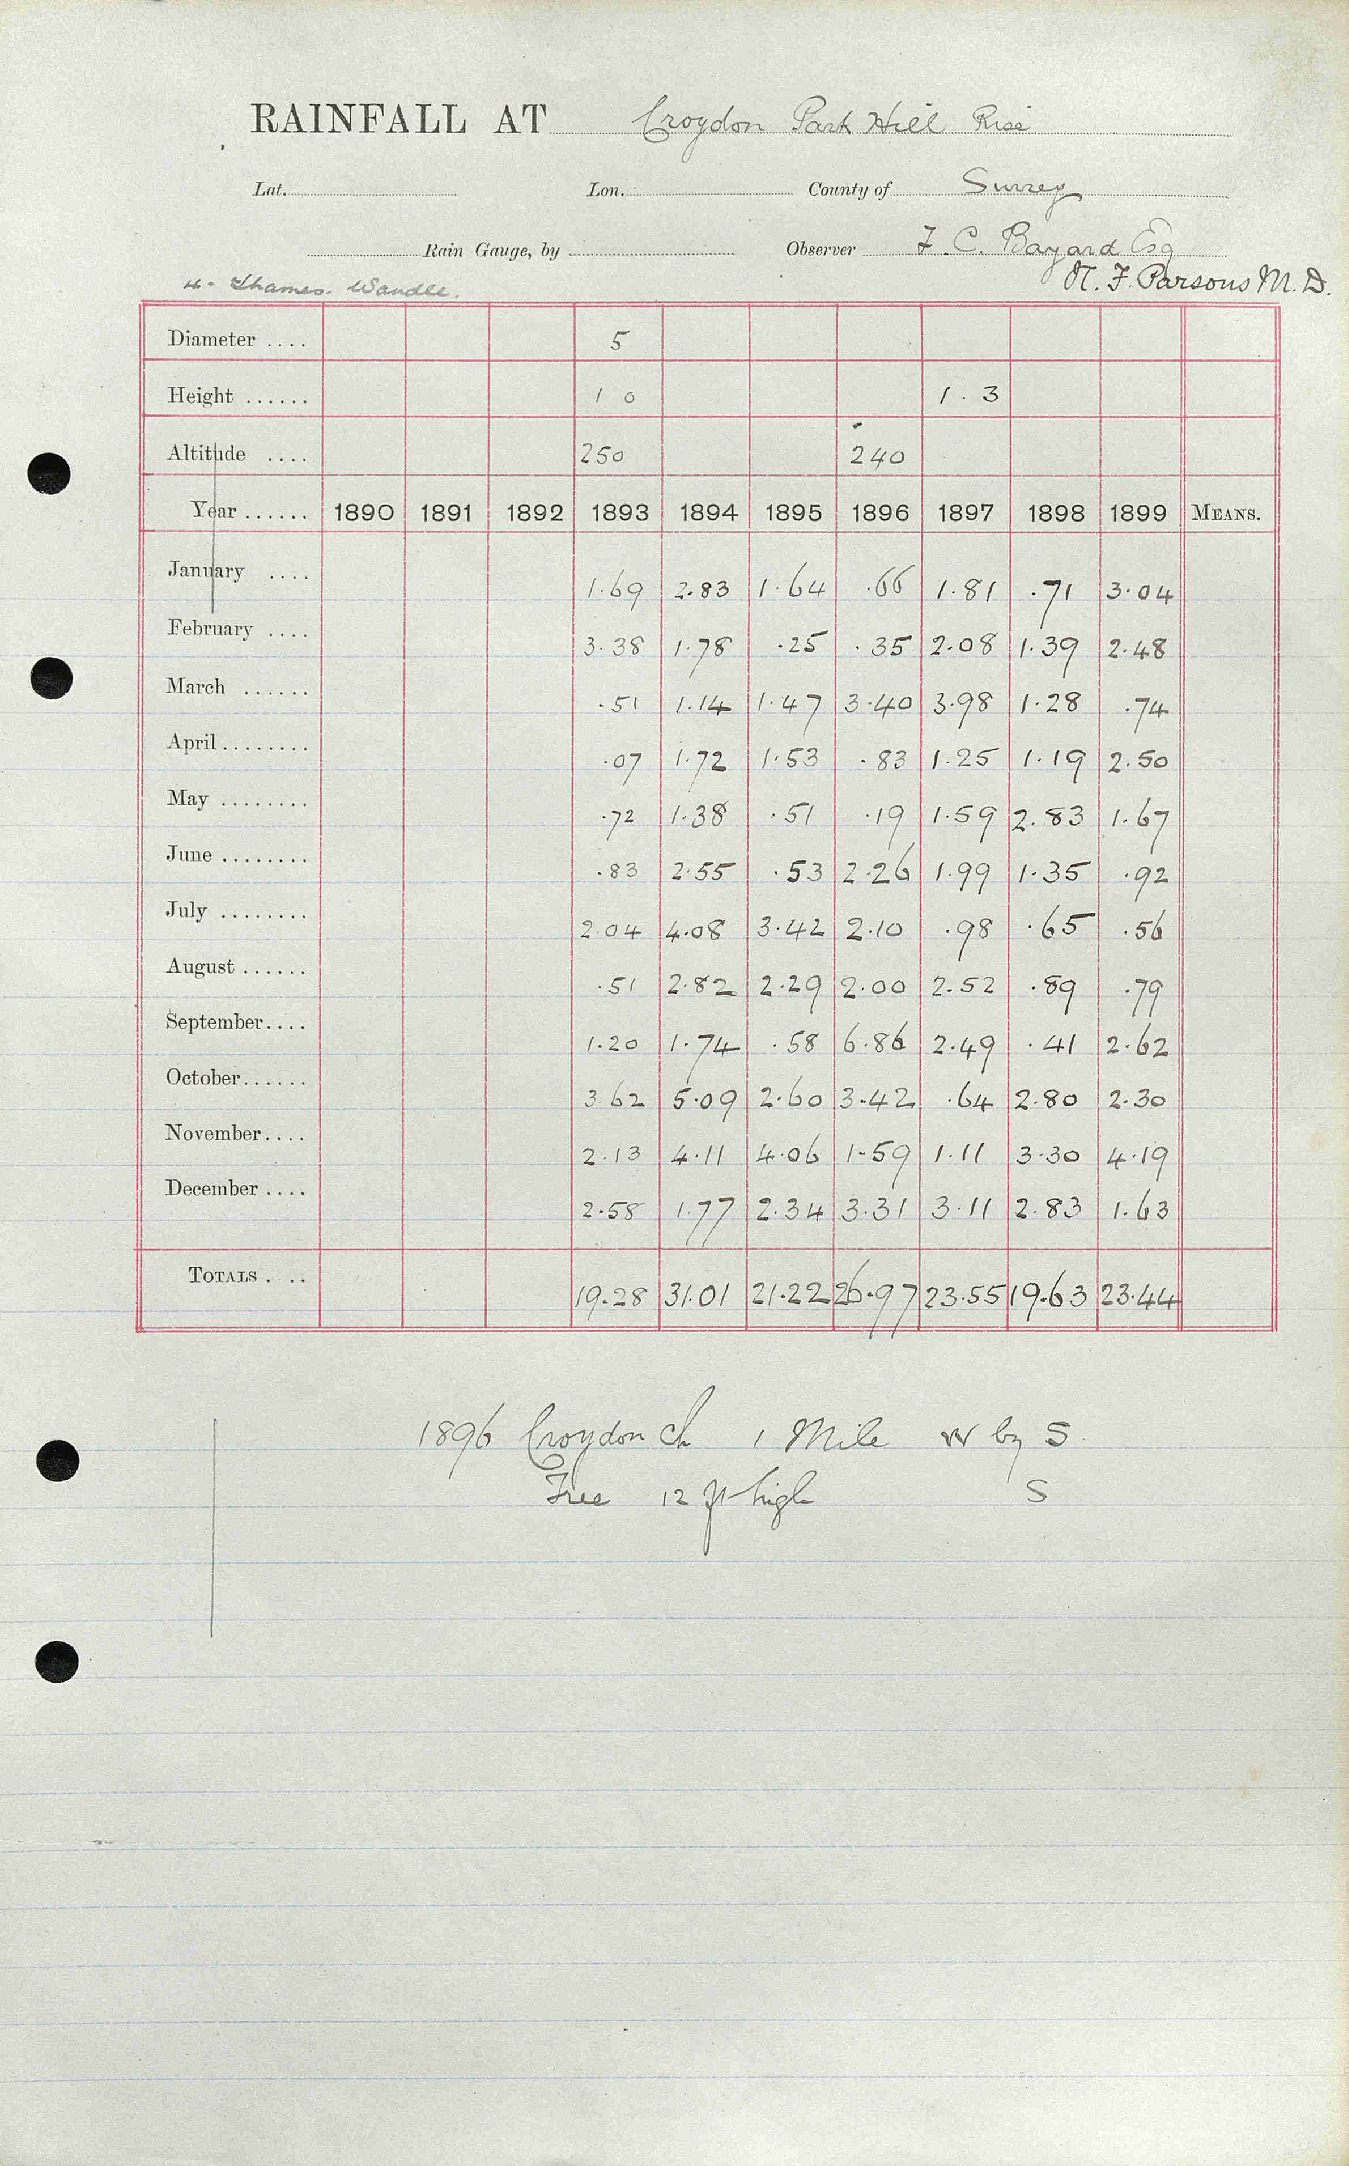 RAINFALL AT Croydon Park Hill Rise
Lat. Lon. County of Surrey
Rain Gauge, by Observer F. C. Bayard Esq
4. Thames. Wandle. H. F. Parsons M. D.
Diameter .... 5
Height ...... 1 0 1 . 3
Altitude .... 250 240
Year ...... 1890 1891 1892 1893 1894 1895 1896 1897 1898 1899 MEANS.
January .... 1.69 2.83 1.64 .66 1.81 .71 3.04
February .... 3.38 1.78 .25 .35 2.08 1.39 2.48
March ...... .51 1.14 1.47 3.40 3.98 1.28 .74
April ........ .07 1.72 1.53 .83 1.25 1.19 2.50
May ........ .72 1.38 .51 .19 1.59 2.83 1.67
June ........ .83 2.55 .53 2.26 1.99 1.35 .92
July ........ 2.04 4.08 3.42 2.10 .98 .65 .56
August ...... .51 2.82 2.29 2.00 2.52 .89 .79
September.... 1.20 1.74 .58 6.86 2.49 .41 2.62
October...... 3.62 5.09 2.60 3.42 .64 2.80 2.30
November.... 2.13 4.11 4.06 1.59 1.11 3.30 4.19
December .... 2.58 1.77 2.34 3.31 3.11 2.83 1.63
TOTALS . .. 19.28 31.01 21.22 26.97 23.55 19.63 23.44
1896 Croydon Ch 1 Mile W by S.
Tree 12 ft high S